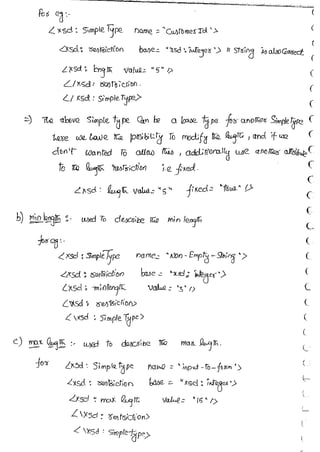 for eg:-
<xsd: Simple Type name = "Customer Id">
<xsd: restriction base= "xsd: integer"> # String is also Correct
<xsd: length value= "5" />
</xsd: restriction>
</ xsd: Simple Type>
=) The above Simple type Can be a base type for another Simple type
here we have the possibility To modify the length, and if we
don't wanted To allow this, additionally use another attribute
to the length restriction i.e fixed.
<xsd: length value= "5" fixed= "true" />
b) min length :- used To describe the min length
for eg:-
<xsd: Simple Type name= "Non - Empty - String">
<xsd: restriction base = "xsd: integer">
<xsd: minlength value = "5" />
<\xsd: restriction>
<\xsd : Simple Type>
c) max length :- used to describe the max length.
for <xsd: Simple type name = "input - to - form">
<xsd: restriction base = "xsd: integer">
<xsd: max length value= "15" />
<\xsd: restriction>
<\xsd: Simple type>